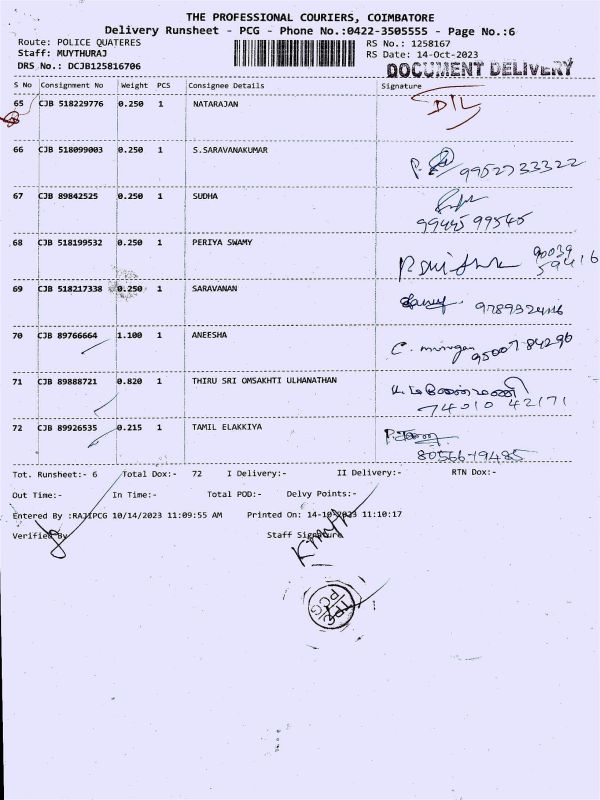 THE PROFESSIONAL COURIERS, COIMBATORE
Delivery Runsheet - PCG - Phone No.:0422-3505555 - Page No.:6
Route: POLICE QUATERES RS No.: 1258167
Staff: MUYTHURAJ RS Date: 14-Oct-2023
DRS No.: DCJB125816706 DOCUMENT DELIVERY
S No Consignment No Weight PCS Consignee Details Signature
65 CJB 518229776 0.250 1 NATARAJAN DIL
66 CJB 518099003 0.250 1 S.SARAVANAKUMAR
P. 9952733322
67 CJB 89842525 0.250 1 SUDHA
99445 99545
68 CJB 518199532 0.250 1 PERIYA SWAMY
90039
59416
69 CJB 518217338 0.250 1 SARAVANAN
70 CJB 89766664 1.100 1 ANEESHA
C. murugan 95007 84296
71 CJB 89888721 0.820 1 THIRU SRI OMSAKHTI ULHANATHAN
74010 42171
72 CJB 89926535 0.215 1 TAMIL ELAKKIYA
80566-19485
Tot. Runsheet:- 6 Total Dox:- 72 I Delivery:- II Delivery:- RTN Dox:-
Out Time:- In Time:- Total POD:- Delvy Points:-
Entered By :RAJIPCG 10/14/2023 11:09:55 AM Printed On: 14-10-2023 11:10:17
Verified By Staff Signature
PCG